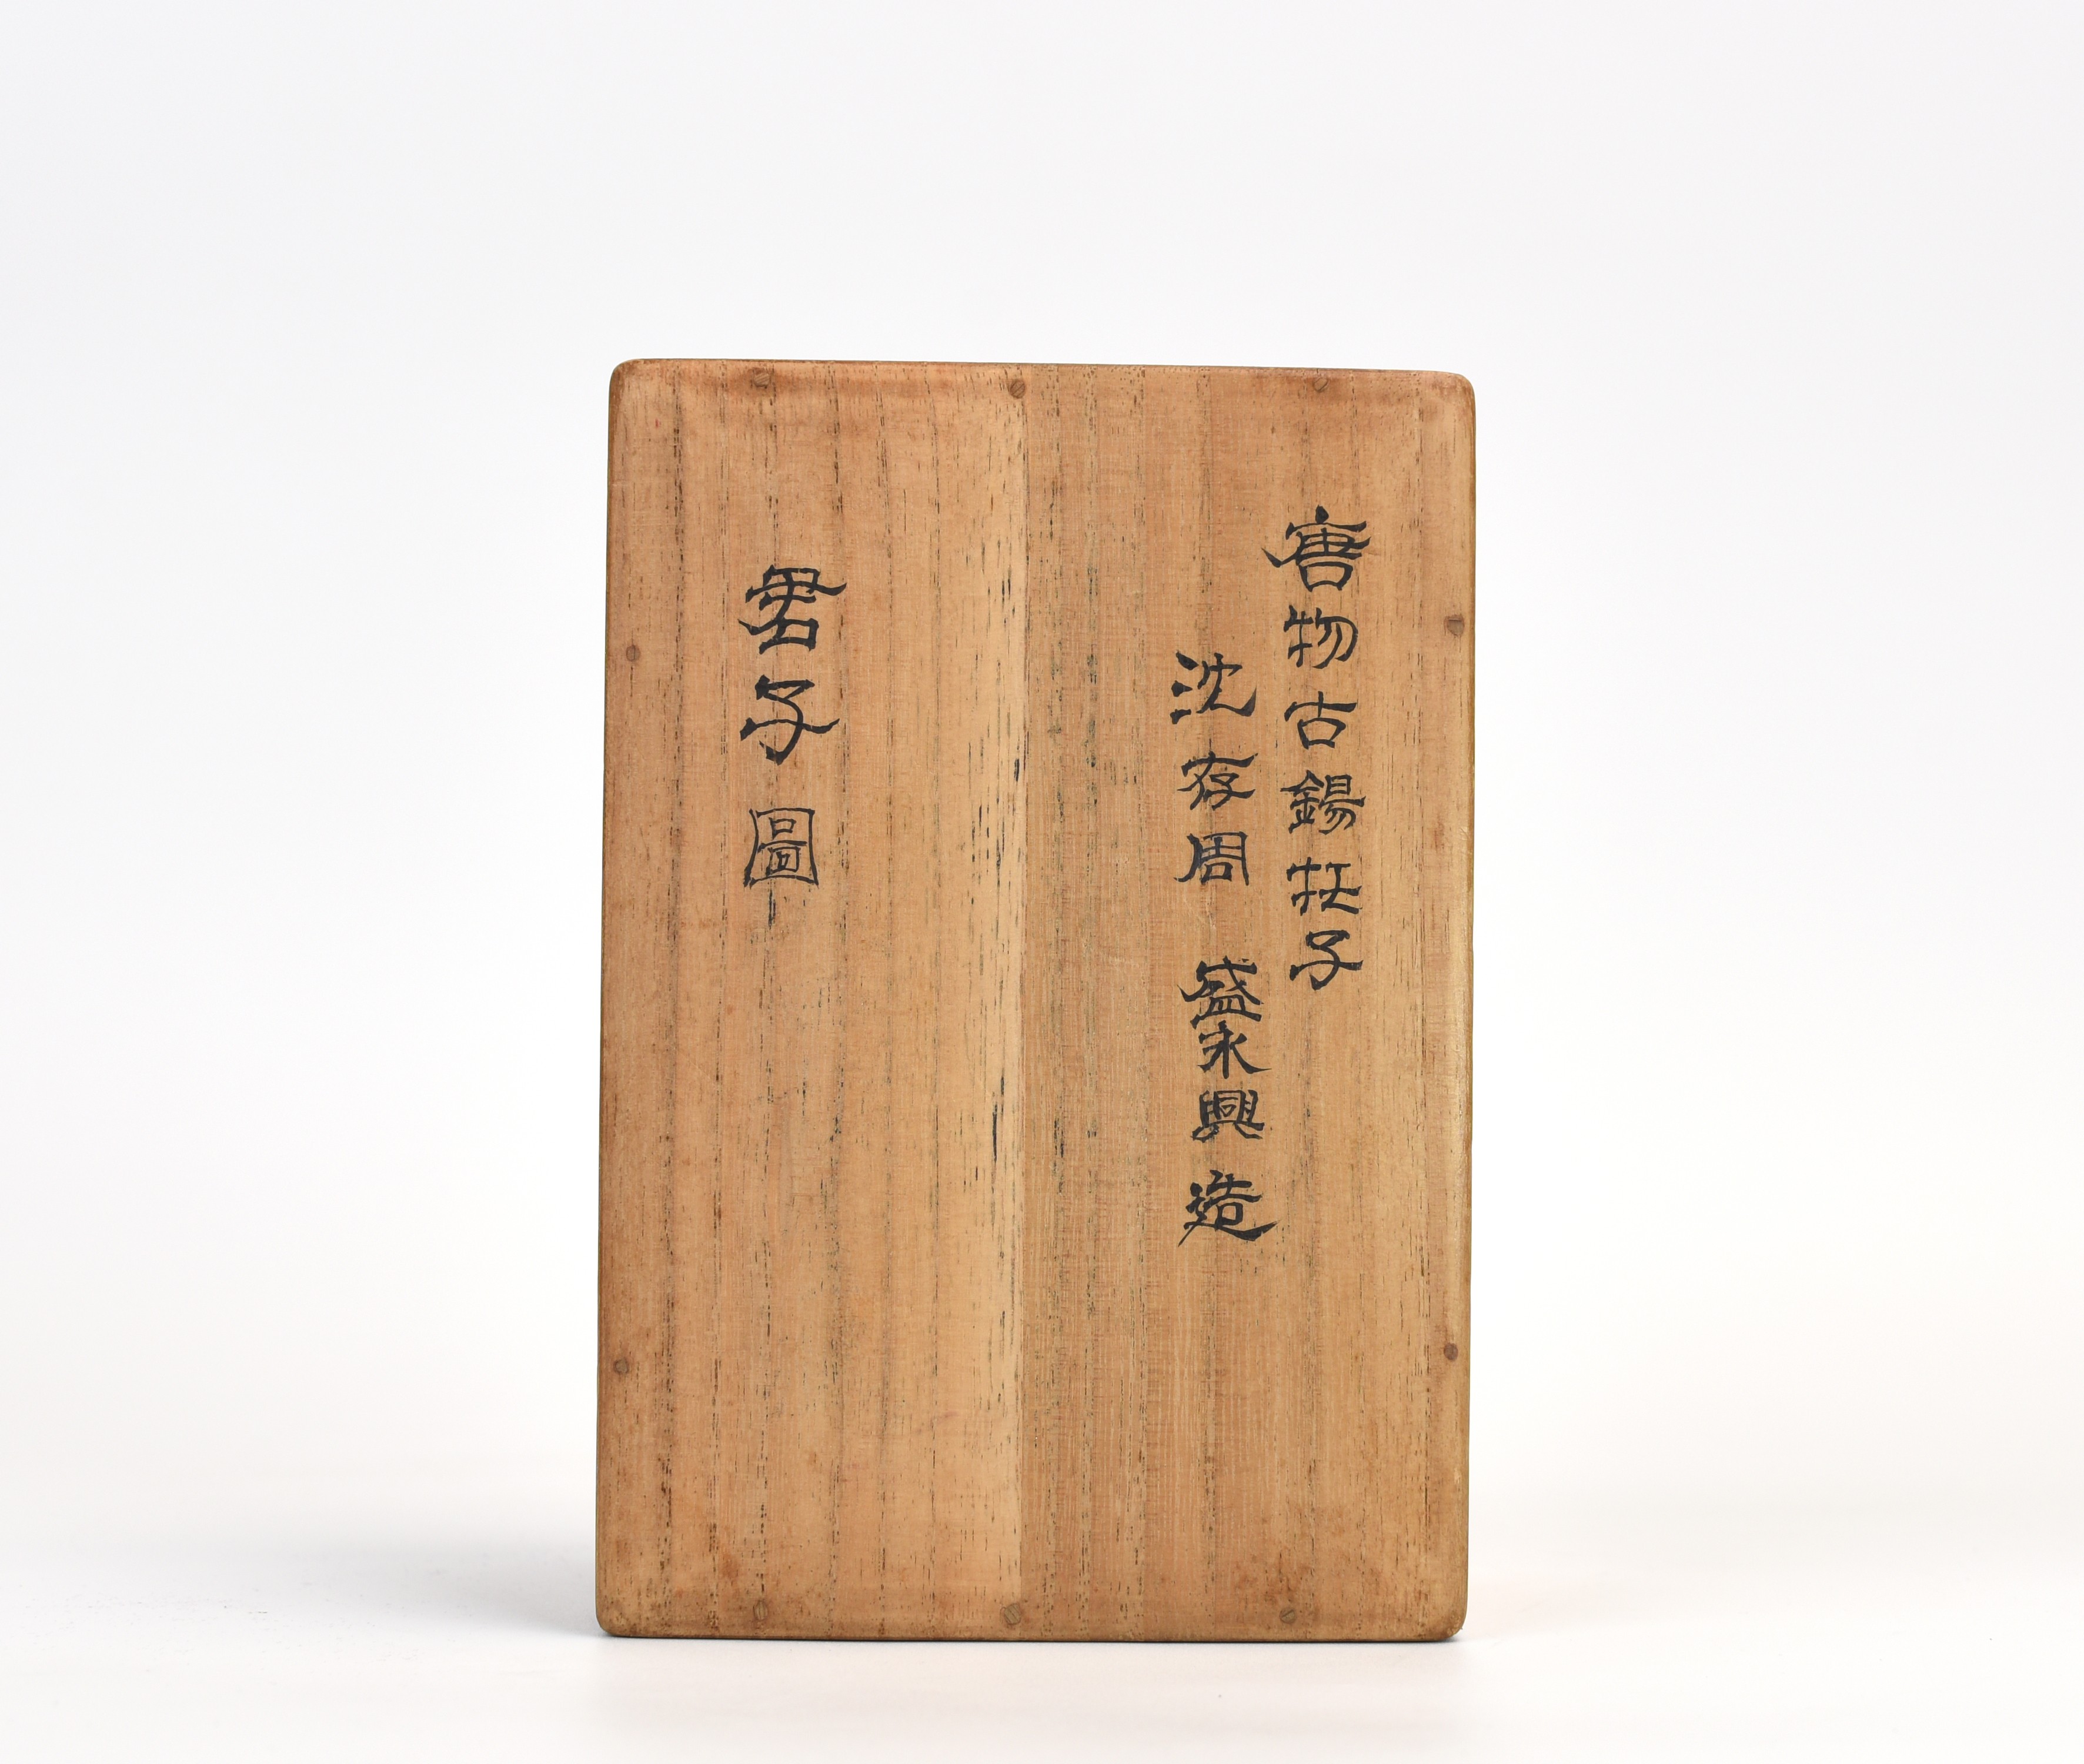 唐物古錫托子
沈存周 盛永興 造
君子圖